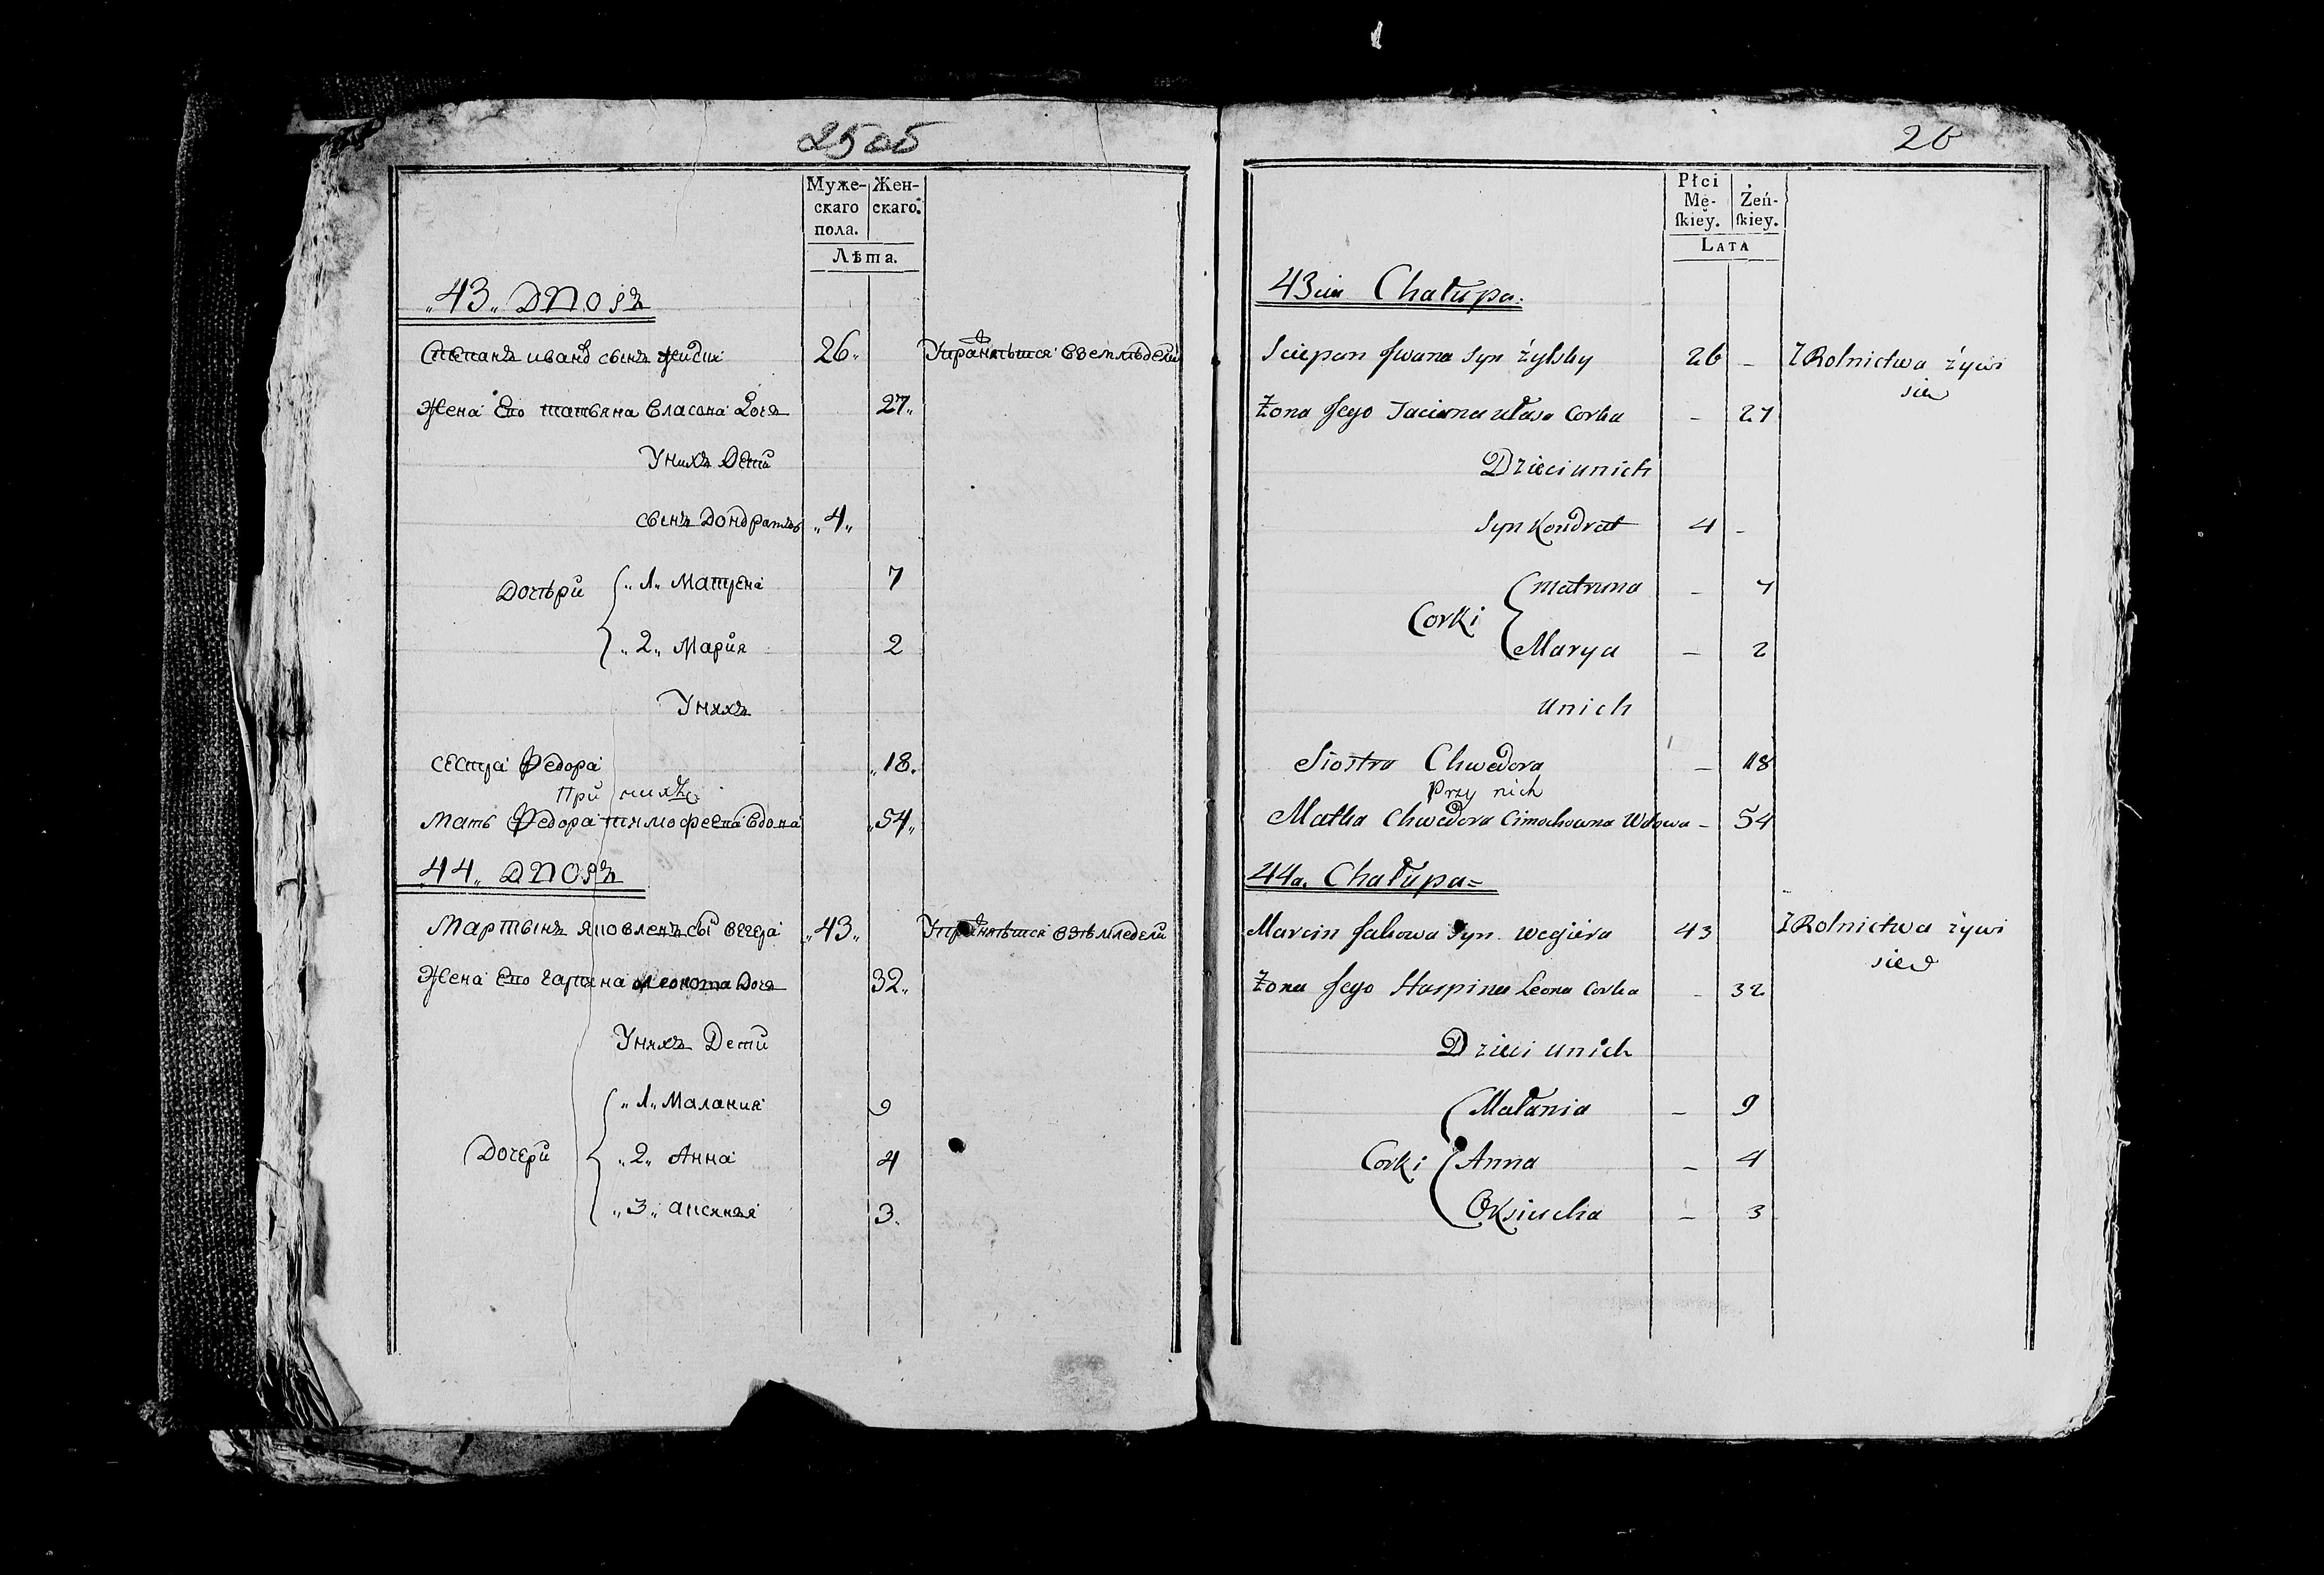 25 об
Муже-
скаго
пола.
Жен-
скаго.
Лѣта.
„43„ Дворъ
Степанъ иванов сынъ 26„
Жена Его татьяна власова Дочь 27„
Унихъ Дети
сынъ Кондратъ „4„
Дочѣри
„1„ Матрена 7
„2„ Мария 2
Унихъ
сестра Федора „18„
При нихъ
Мать Федора тимофеева вдова „54„
44„ Дворъ
Мартынъ яковлевъ сы вегера „43„
Жена Его гапина Дочь 32„
Унихъ Дети
Дочери
„1„ Малания 9
„2„ Анна 4
„3„ 3„
26
Płci
Mę-
ſkiey.
Żeń-
ſkiey.
LATA
43cia Chałupa.
Sciepan Jwana Syn żylsky 26 – Z Rolnictwa żywi
sie
Żona Jego Taciana ułasa Corka – 27
Dzieci unich
Syn Kondrat 4 –
Corki
Matruna – 7
Marya – 2
unich
Siostra Chwedora – 18
Przy nich
Matka Chwedora Cimochowna Wdowa – 54
44a. Chałupa=
Marcin Jakowa Syn wegiera 43 Z Rolnictwa żywi
sie
Żona Jego Haspina Leona Corka – 32
Dzieci unich
Corki
Małania – 9
Anna – 4
Oksiucha – 3